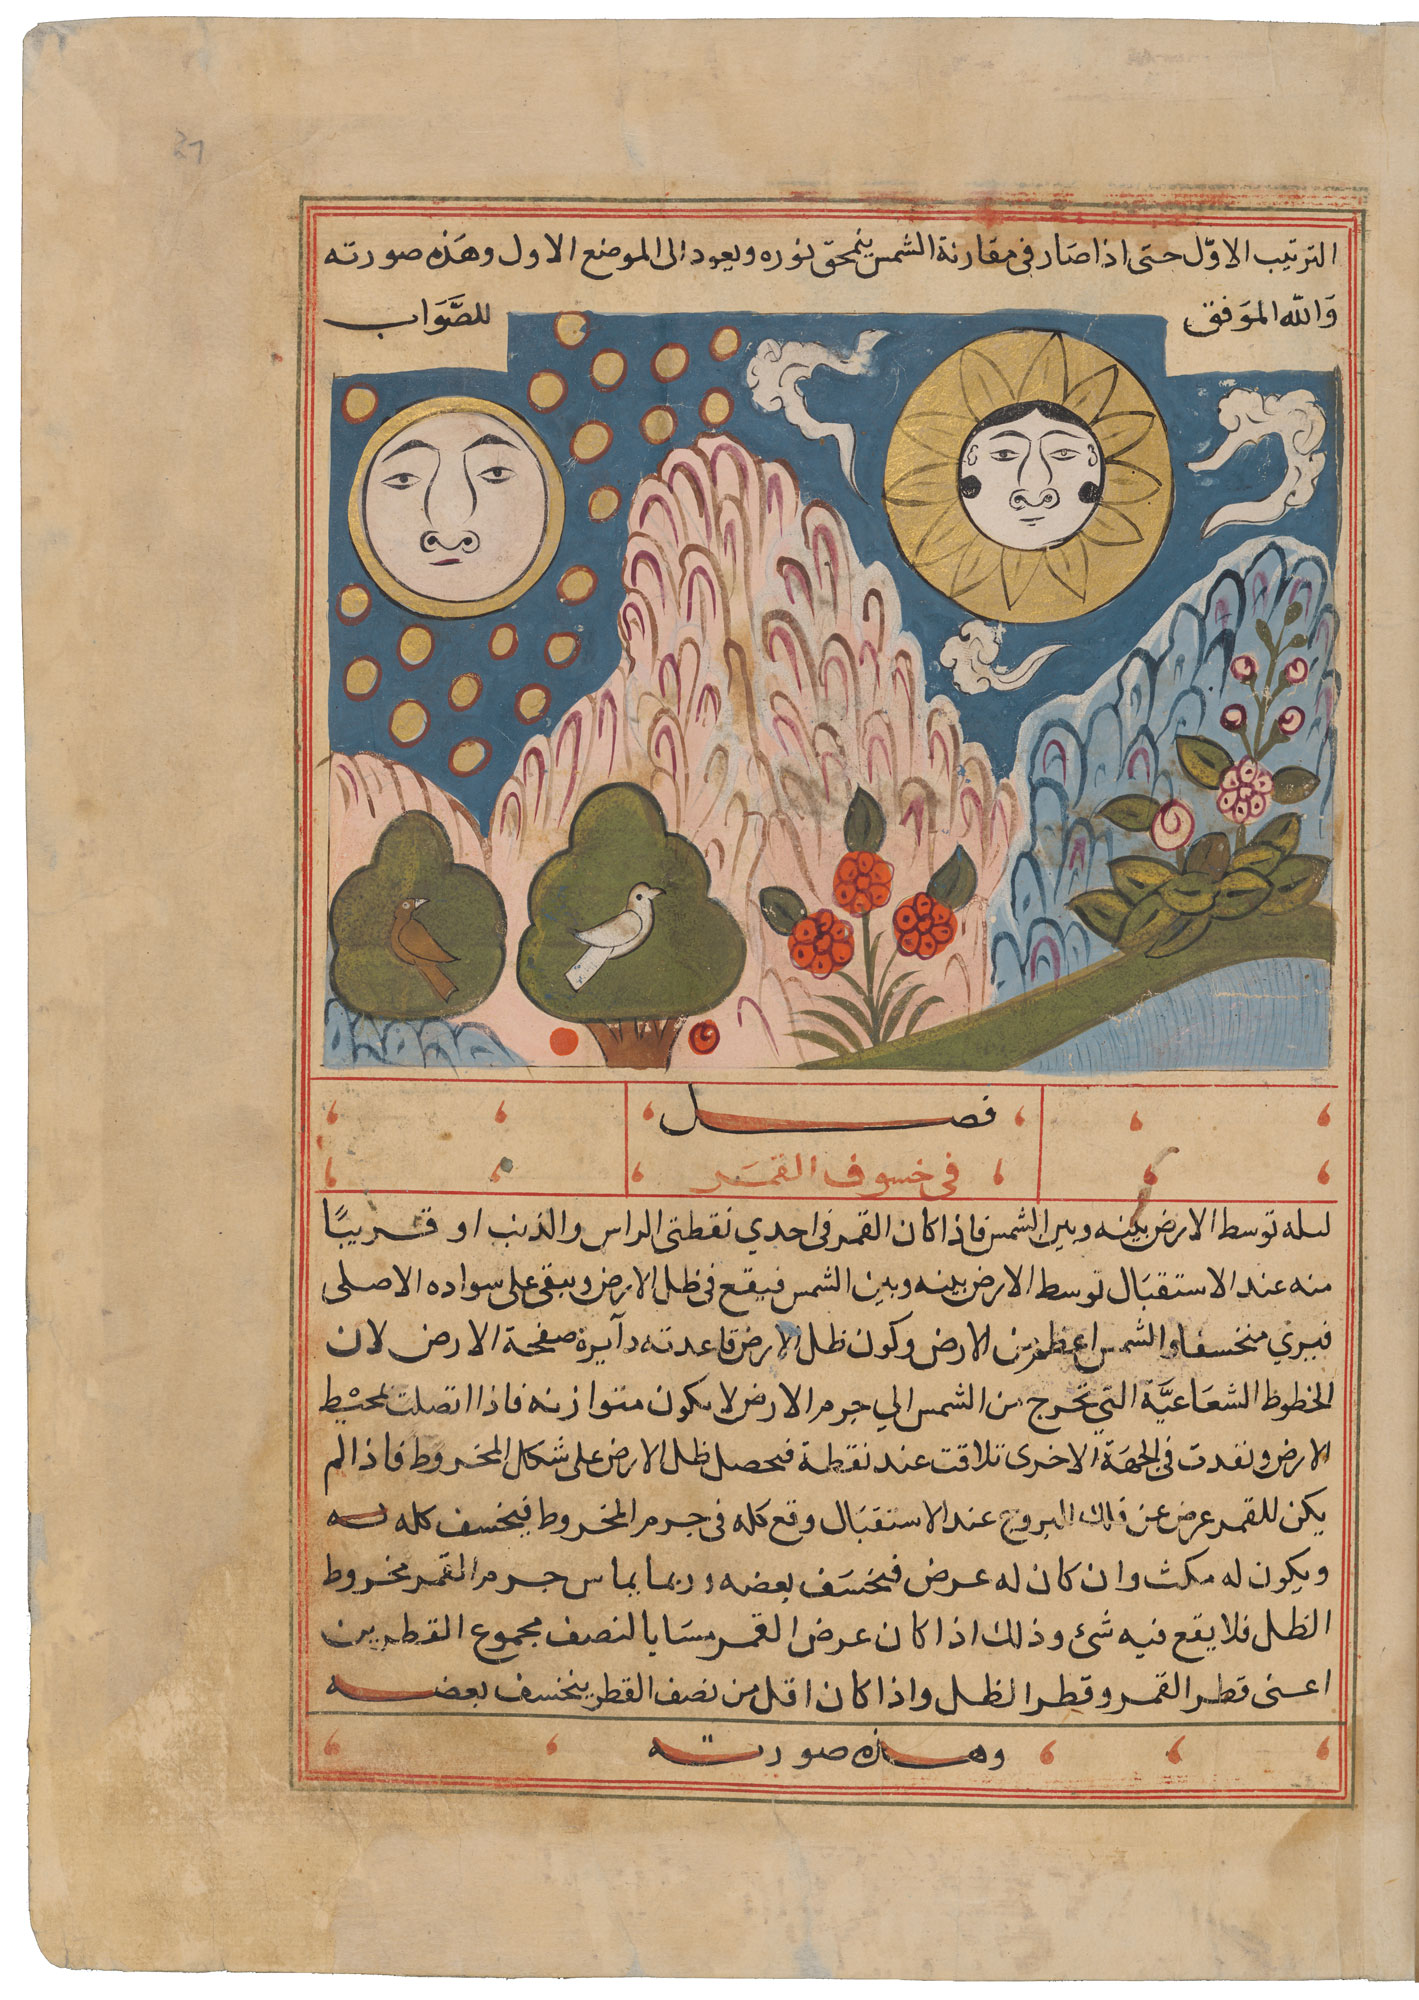 الترتيب الاوّل حتى اذا صار فى مقارنة الشمس ينمحق نوره ويعود الى الموضع الاول وهَذه صورته
وَالله الموَفق للصَّوَاب
فصل
فى خسوف القمَر
توسط الارض بينه وبين الشمس فاذا كان القمر فى احدي نقطتى الراس والذنب او قريبًا
منه عند الاستقبَال توسط الارض بينه وبين الشمس فيقع فى ظل الارض ويبقى على سواده الاصلى
فيري منخسفا والشمس اعظم من الارض وكون ظل الارض قاعدته دآيرة صفحة الارض لان
الخطوط الشعَاعيَّة التي تخرج من الشمس الي جرم الارض لا يكون متوازنه فاذا اتصلت بمحيْط
الارض ونفدت فى الجهَة الاخرى تلاقت عند نقطة فيحصل ظل الارض على شكل المخروط فاذا لم
يكن للقمر عرض عن فلك البروج عند الاستقبَال وقع كله فى جرم المخروط فيخسف كله
ويكون له مكث وان كان له عرض فيخسَف بعضه وربما يماس جرم القمر مخروط
الظل فلا يقع فيه شئ وذلك اذا كان عرض القمر مسَايا لنصف مجموع القطرين
اعنى قطر القمر وقطر الظل واذا كان اقل من نصف القطر ينخسف بعضه
وهذه صورته